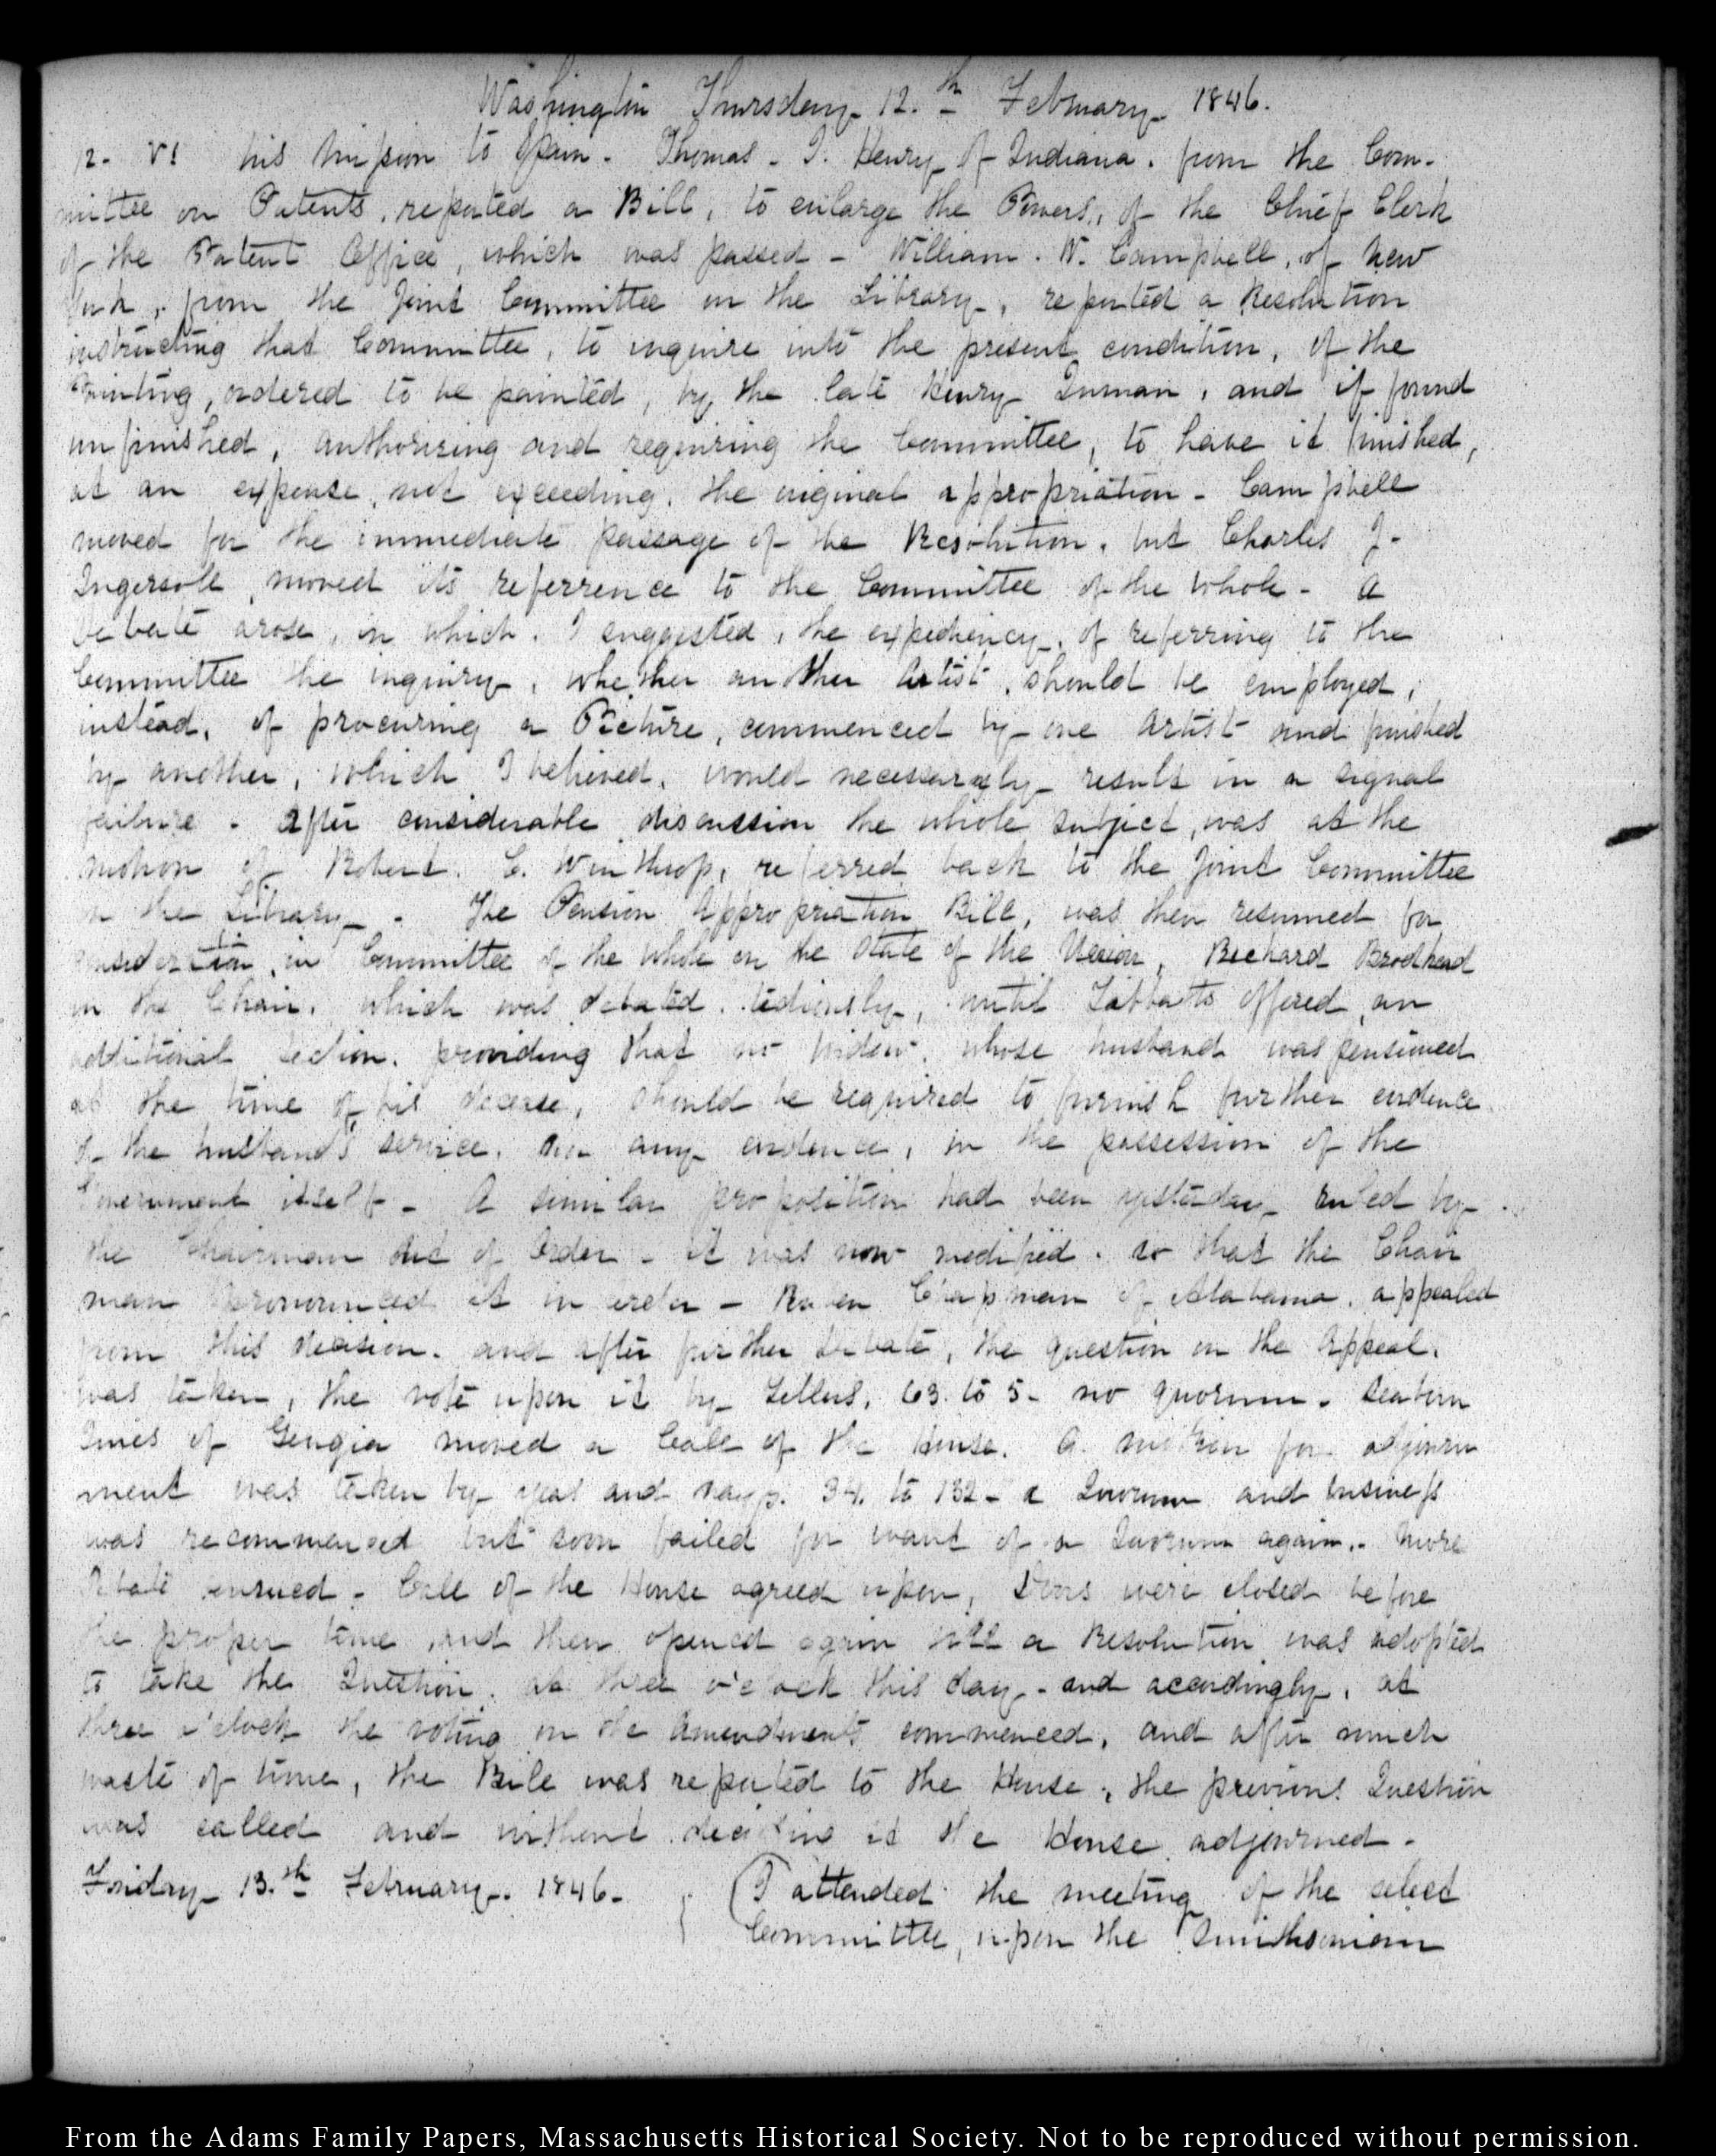 Washington Thursday 12.th February 1846.
12. VI his mission to Spain. Thomas. J. Henry of Indiana. from the Com-
mittee on Patents, reported a Bill, to enlarge the Powers, of the Chief Clerk
of the Patent Office, which was passed - William. W. Campbell, of New
York, from the Joint Committee on the Library, reported a Resolution
instructing that Committee, to inquire into the present condition, of the
Painting, ordered to be painted, by the late Henry Inman, and if found
unfinished, authorising and requiring the Committee, to have it finished,
at an expense, not exceeding, the original appropriation - Campbell
moved for the immediate passage of the Resolution, but Charles J.
Ingersoll, moved its referrence to the Committee of the whole - A
debate arose, in which, I suggested, the expediency, of referring to the
Committee the inquiry, whether another Artist, should be employed,
instead, of procuring a Picture, commenced by one Artist and finished
by another, which I believed, would necessaryly result in a signal
failure - After considerable discussion the whole subject, was at the
motion of Robert. C. Winthrop, referred back to the Joint Committee
on the Library - The Pension Appropriation Bill, was then resumed for
consideration, in Committee of the whole on the State of the Union, Richard Brodhead
in the Chair, which was debated, tediously, until Tibbatts offered, an
additional section, providing that no widow, whose husband was pensioned
at the time of his decease, should be required to furnish further evidence
of the husband's service, than any evidence, in the possession of the
Government itself - A similar proposition had been yesterday ruled by
the Chairman out of Order - it was now modified, so that the Chair
man pronounced it in order - Reuben Chapman of Alabama, appealed
from this decision, and after further debate, the question on the Appeal,
was taken, the vote upon it by Tellers, 63 to 5 - no quorum. Seaborn
Jones of Georgia moved a Call of the House. A motion for adjourn
ment was taken by yeas and nays. 34. to 132 - a Quorum and business
was recommenced but soon failed for want of a Quorum again. More
debate ensued - Call of the House agreed upon, Doors were closed before
the proper time, and then opened again till a Resolution was adopted
to take the Question, at three o'clock this day - and accordingly, at
three o'clock the voting on the Amendments commenced, and after much
waste of time, the Bill was reported to the House, the previous Question
was called and without deciding it the House adjourned -
Friday 13.th February. 1846. I attended the meeting of the select
Committee, upon the Smithsonian
From the Adams Family Papers, Massachusetts Historical Society. Not to be reproduced without permission.